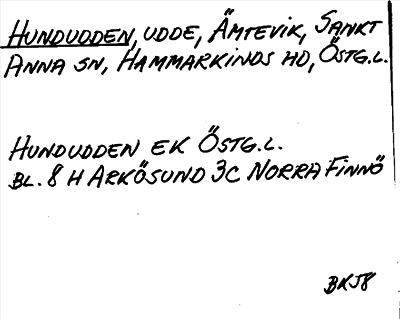 HUNDUDDEN, UDDE, ÄMTEVIK, SANKT
ANNA SN, HAMMARKINDS HD, ÖSTG.L.
HUNDUDDEN EK ÖSTG.L.
BL. 8 H ARKÖSUND 3C NORRA FINNÖ
BKJ8